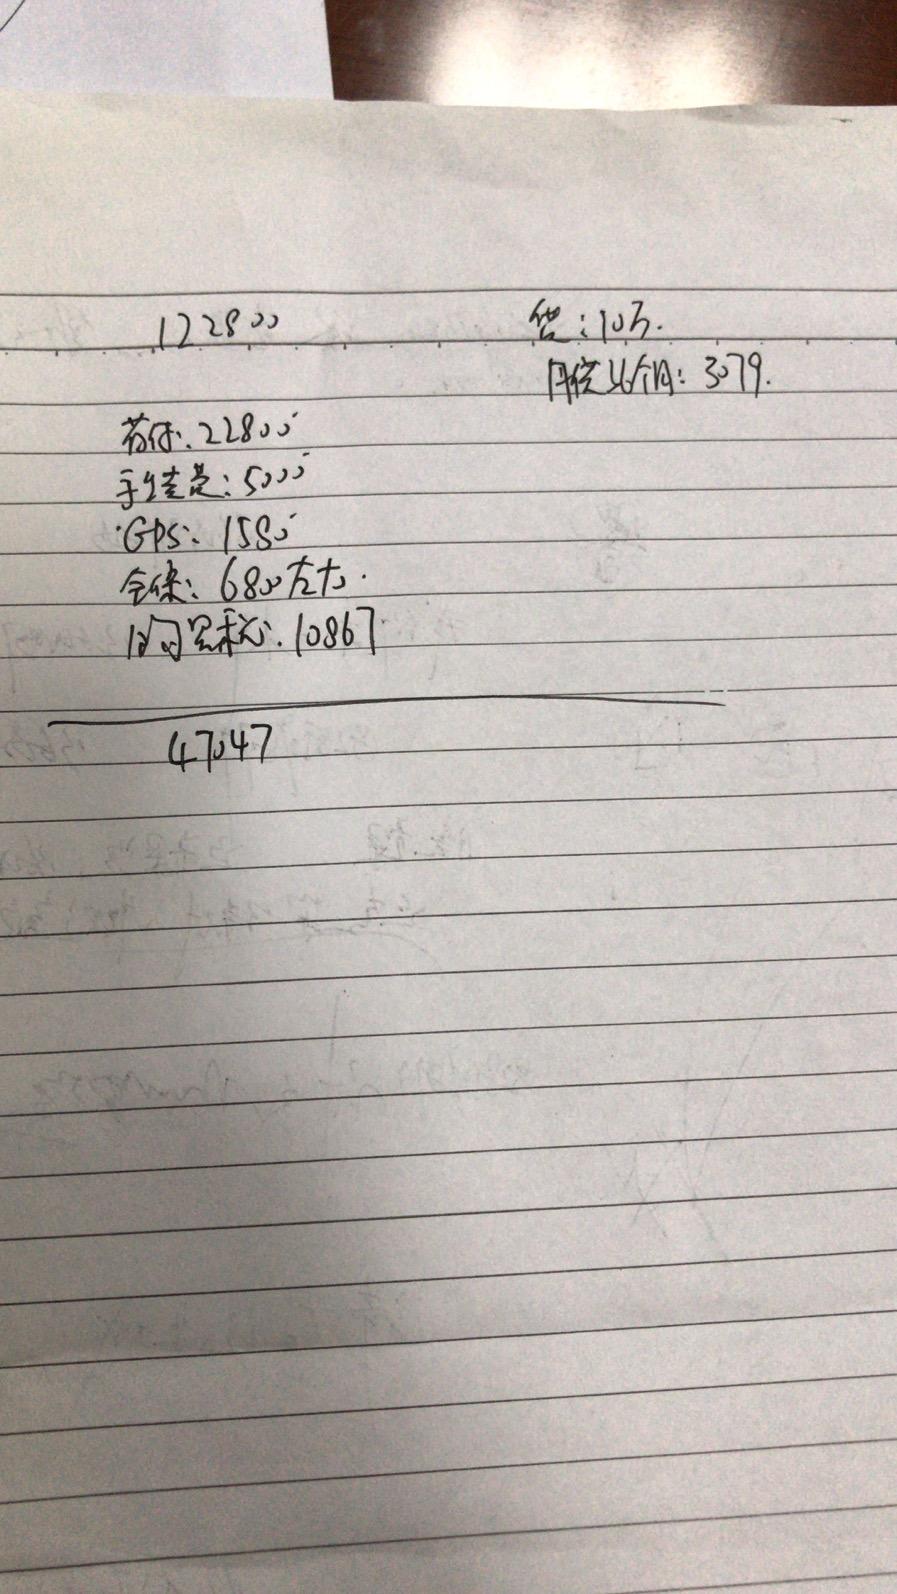 122800
贷:10万.
月供36个月:3079.
首付:22800
手续费:5000
GPS:1580
全保:6800左右.
购置税:10867
47047